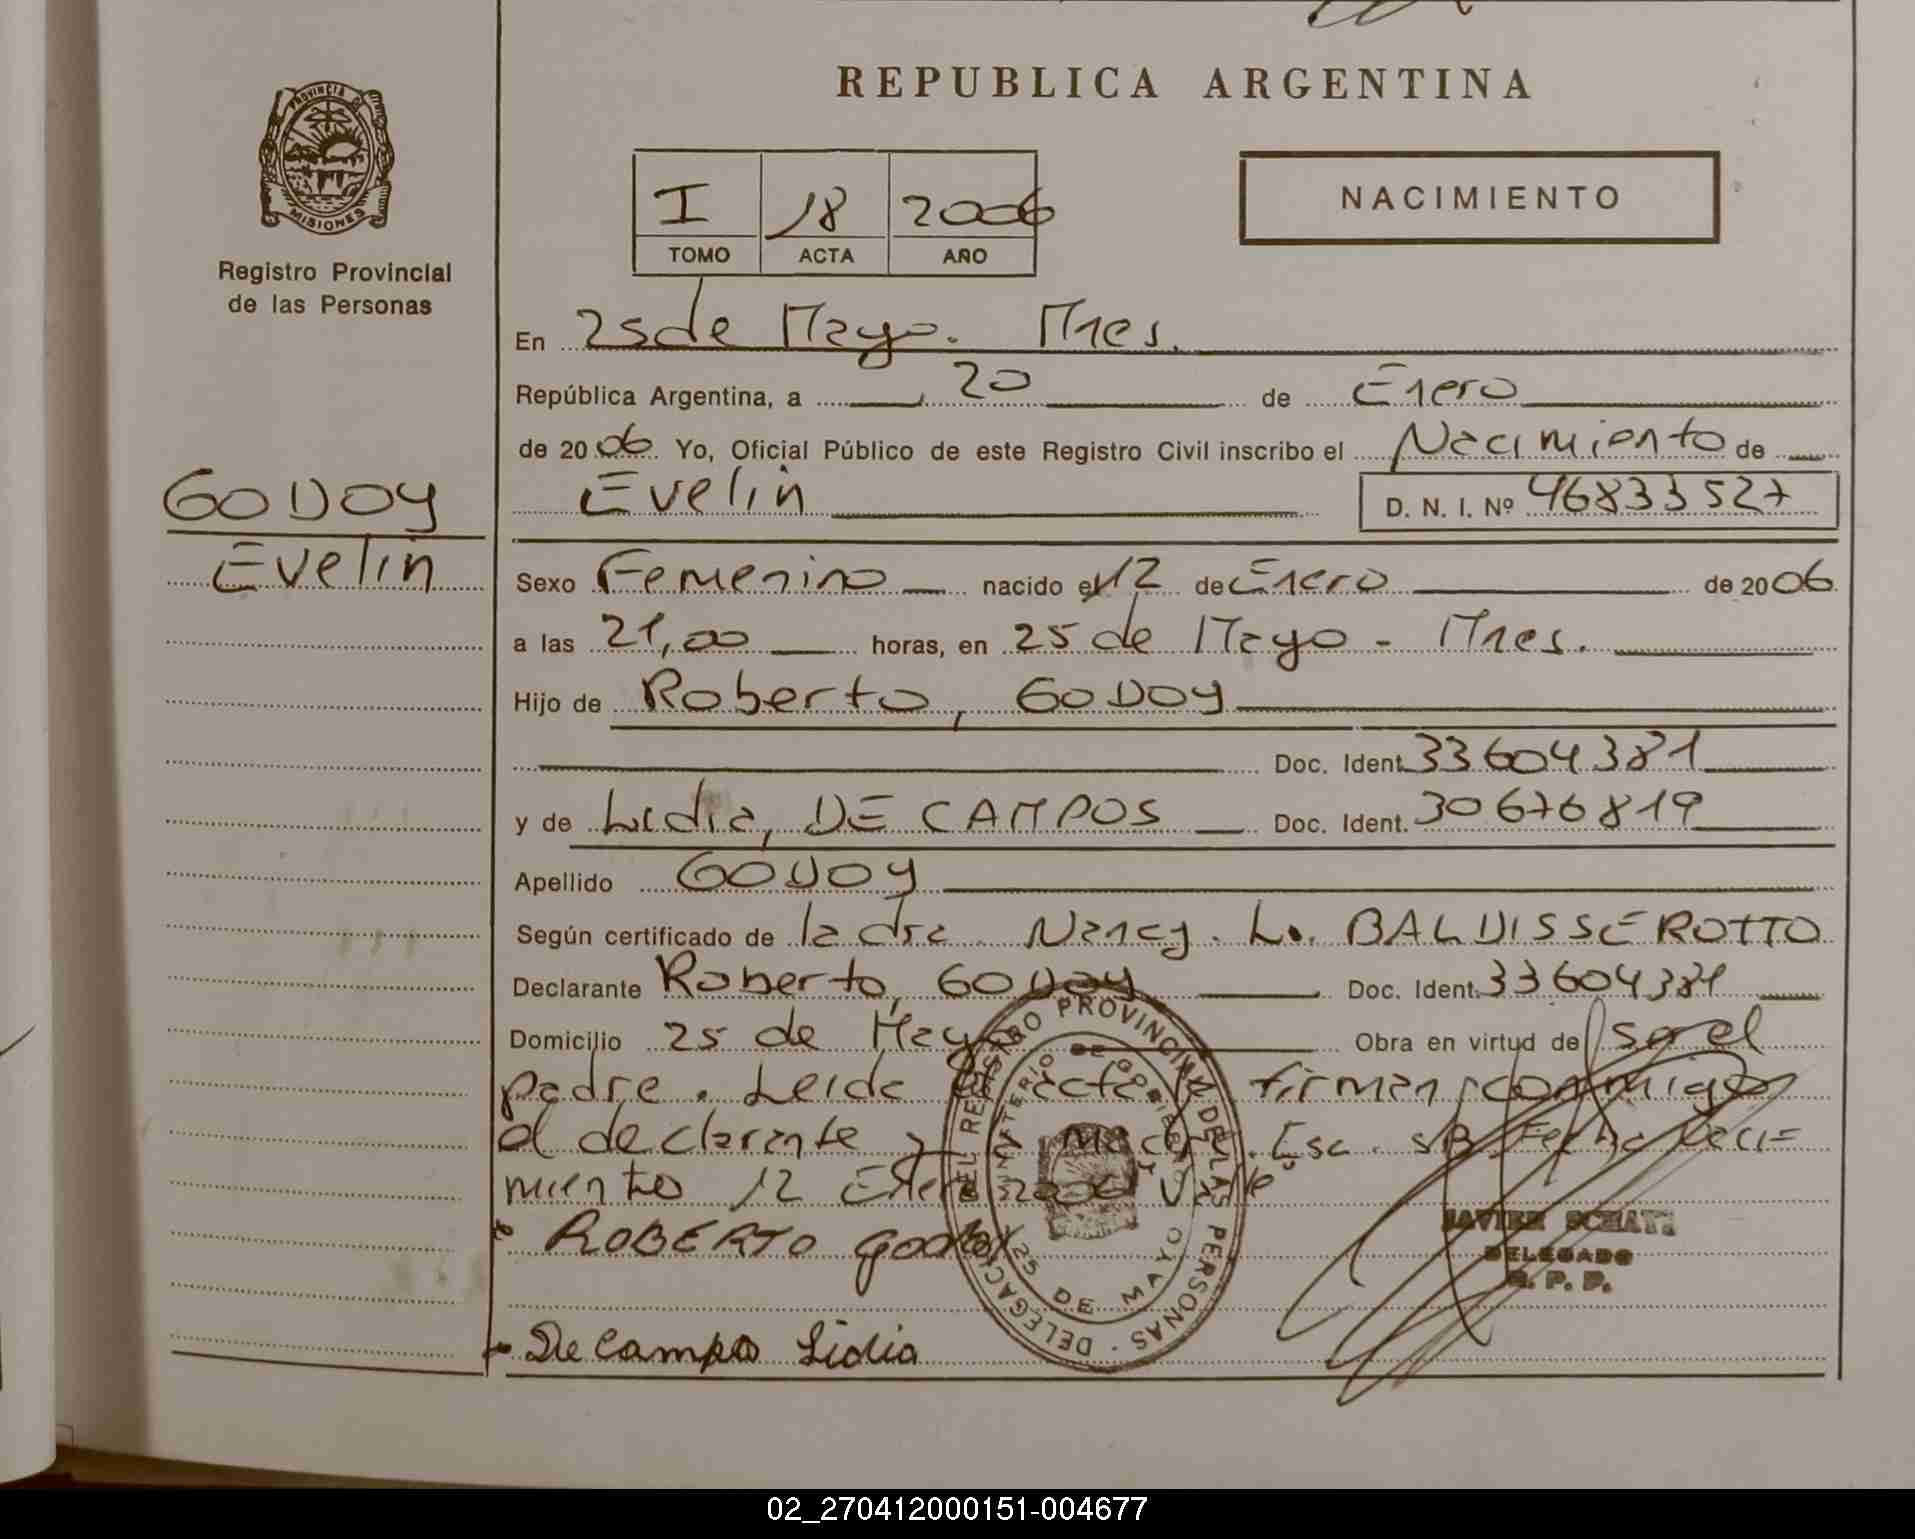 REPUBLICA ARGENTINA
PROVINCIA DE
MISIONES
Registro Provincial
de las Personas
I 18 2006
TOMO ACTA AÑO
NACIMIENTO
En 25 de Mayo. Mnes.
República Argentina, a 20 de Enero
de 2006 Yo, Oficial Público de este Registro Civil inscribo el Nacimiento de
Evelin D. N. I. Nº 46833527
GODOY
Evelin
Sexo Femenino nacido el 12 de Enero de 2006
a las 21,00 horas, en 25 de Mayo - Mnes.
Hijo de Roberto, GODOY
Doc. Ident. 33604381
y de Lidia, DE CAMPOS Doc. Ident. 30676819
Apellido GODOY
Según certificado de la dra. Nancy. L. BALDISSEROTTO
Declarante Roberto, GODOY Doc. Ident. 33604381
Domicilio 25 de Mayo Obra en virtud de ser el
padre. Leida el acta firman conmigo
el declarante y Esc. s/B Fecha Naci=
miento 12 Enero 2006 Vale
ROBERTO godoy
De Campos Lidia
DELEGACION DEL REGISTRO PROVINCIAL DE LAS PERSONAS
MINISTERIO DE GOBIERNO
25 DE MAYO
JAVIER
DELEGADO
R. P. P.
02_270412000151-004677